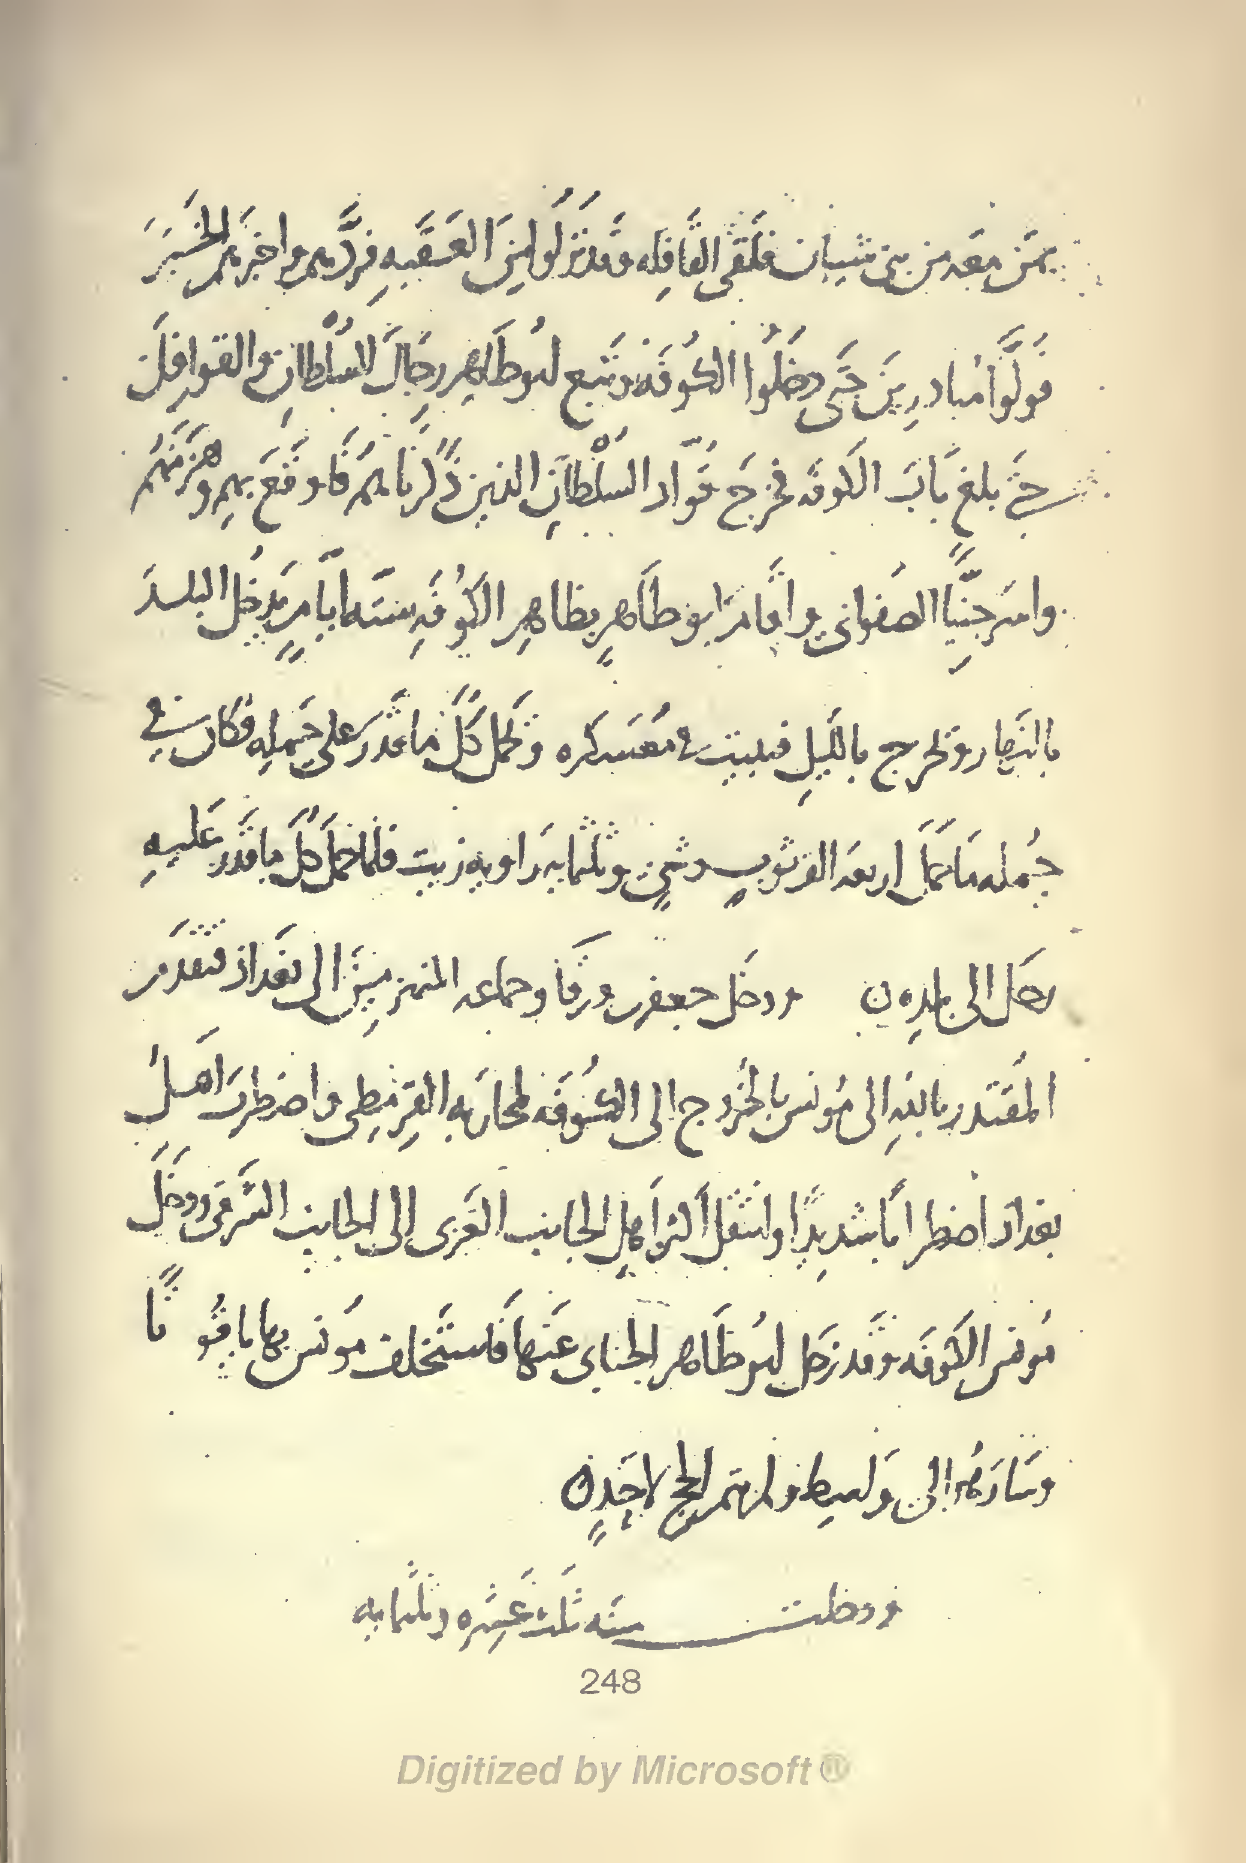 بمَن مَعَه من بنى شيبان فلَقىَ القَافِله وقَد نَزَلُوا مِنَ العَقَبَه فردَّهم واخبَرَهُم الخَبَرَ
فوَلَّوا مُبادِرِينَ حَتَّى دخَلُوا الكُوفَة وتبع ابُو طَاهِر رجَالَ السُلْطانِ والقوافِلَ
حتى بلغ بَابَ الكوفه فخرَجَ قُوّاد السُلْطَانِ الذين ذَكَرنَاهُم فَاوقَعَ بهم وهَزَمَهُم
واسَر جِنِّيًّا الصَفوانى واقَامَ ابو طَاهِرٍ بظاهِرِ الكوُفَهِ ستَّه ايَّامٍ يَدخُل البلد
بالنَهار ويخرج بالليلِ فيبيت في مُعَسكَره ويحمل كُلَّ ما قَدَر عَلى حَمله فكان في
جُمله مَا حَمَل اربعه الف ثوب وشي وثلثمايه راويه زيت فلما حَمَلَ كُلَّ ما قَدَر عَليه
رحَل الى بلده ودخَل جعفر بن ورقَا وجماعه المنهزمينَ الى بَغداذ فتقدم
المُقتدر بالله الى مُونس بالخُروج الى الكُوفَه لمحاربَه القرمِطى واضطربَ اهل
بغداد اضطرابًا شديدًا وانتقل اَكثر اَهلِ الجانب الغَربى الى الجانب الشَرقى ودخَلَ
مُونس الكوفَه وقَد رَحَل ابُو طَاهر الجنابى عَنها فَاستَخلف مُونس بها ياقُوتًا
وسَارَ هُو الى وَاسِط ولم يتم الحج لاحَدٍ
ودخلت سنه ثَلث عَشره وثلثمايه
248
Digitized by Microsoft ®